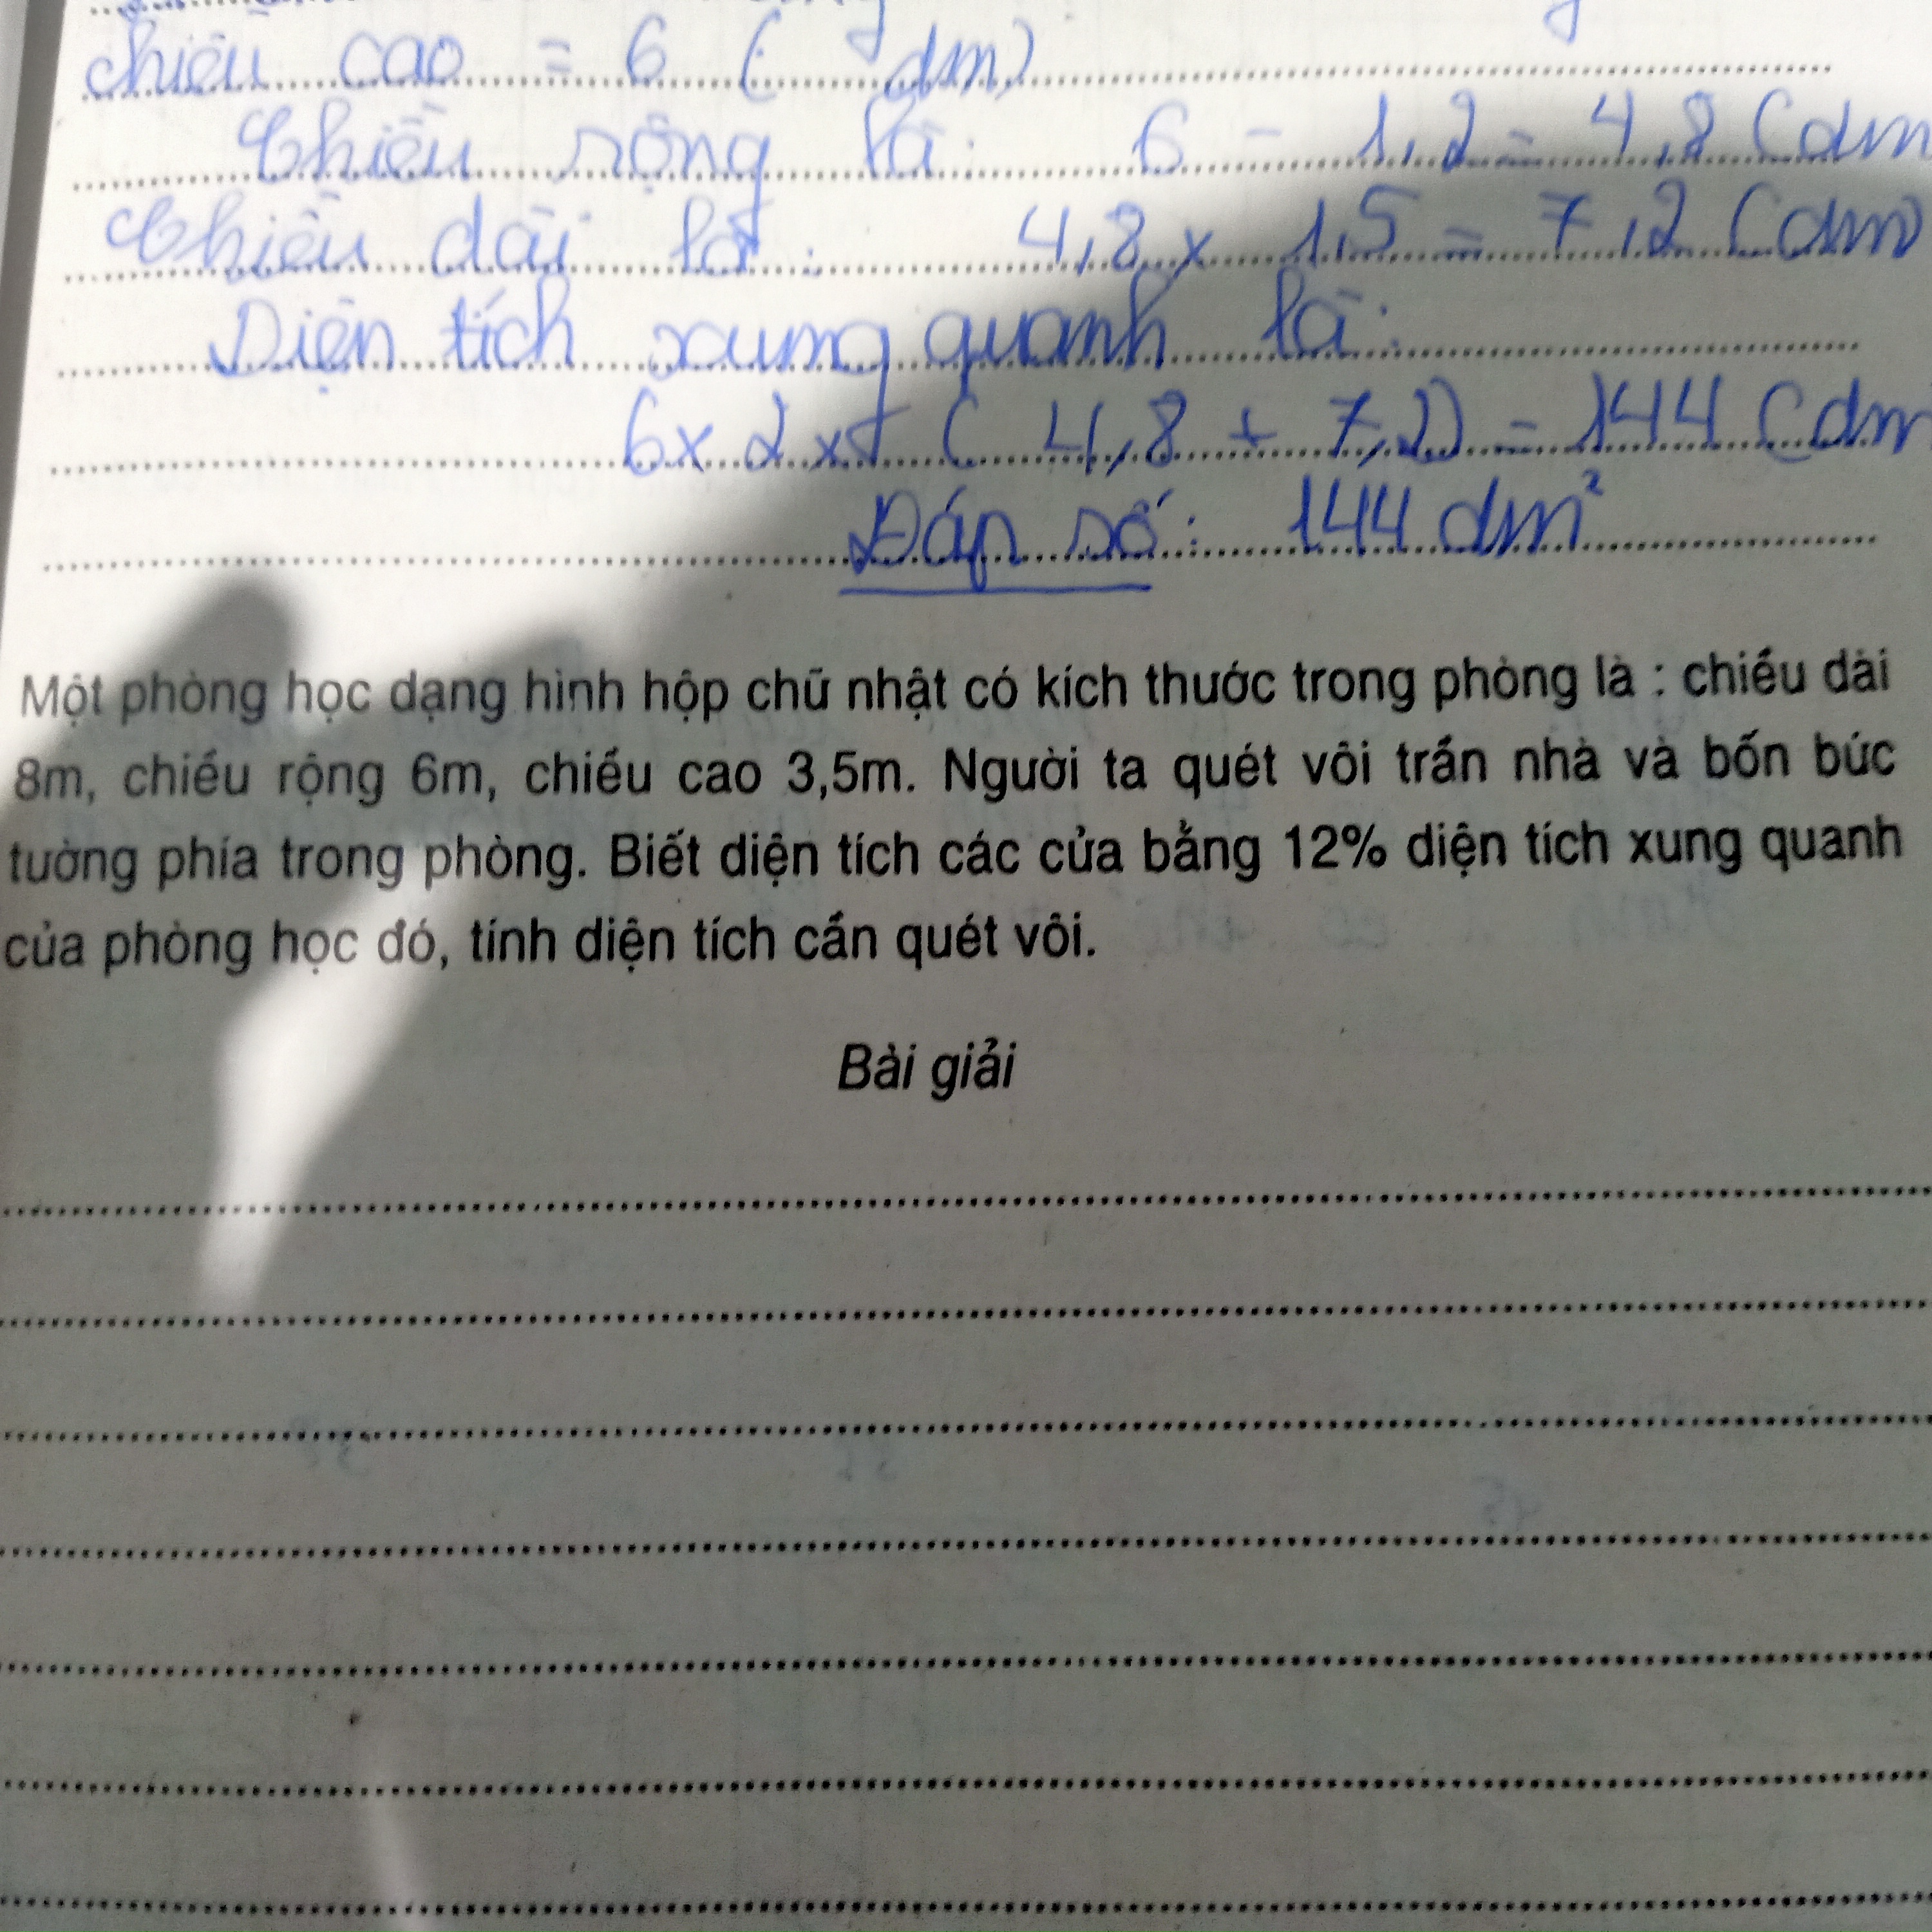 chiều cao = 6 ( dm)
Chiều rộng là: 6 - 1,2 = 4,8 (dm
Chiều dài là: 4,8 x 1,5 = 7,2 (dm)
Diện tích xung quanh là:
6 x 2 x ( 4,8 + 7,2) = 144 (dm
Đáp số: 144 dm²
Một phòng học dạng hình hộp chữ nhật có kích thước trong phòng là : chiều dài
8m, chiều rộng 6m, chiều cao 3,5m. Người ta quét vôi trần nhà và bốn bức
tường phía trong phòng. Biết diện tích các cửa bằng 12% diện tích xung quanh
của phòng học đó, tính diện tích cần quét vôi.
Bài giải